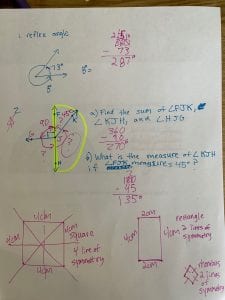 1. reflex angle
73°
360
- 73
287°
F
45°
K
90
J
G
H
?
a) Find the sum of ∠FJK,
∠KJH, and ∠HJG
360
- 90
270°
b) What is the measure of ∠KJH
if ∠FJK measure = 45° ?
180
- 45
135°
4cm
4cm
square
4cm
4cm
4 line of
symmetry
2cm
4cm
4cm
2cm
rectangle
2 lines of
symmetry
rhombus
2 lines
of
symmetry